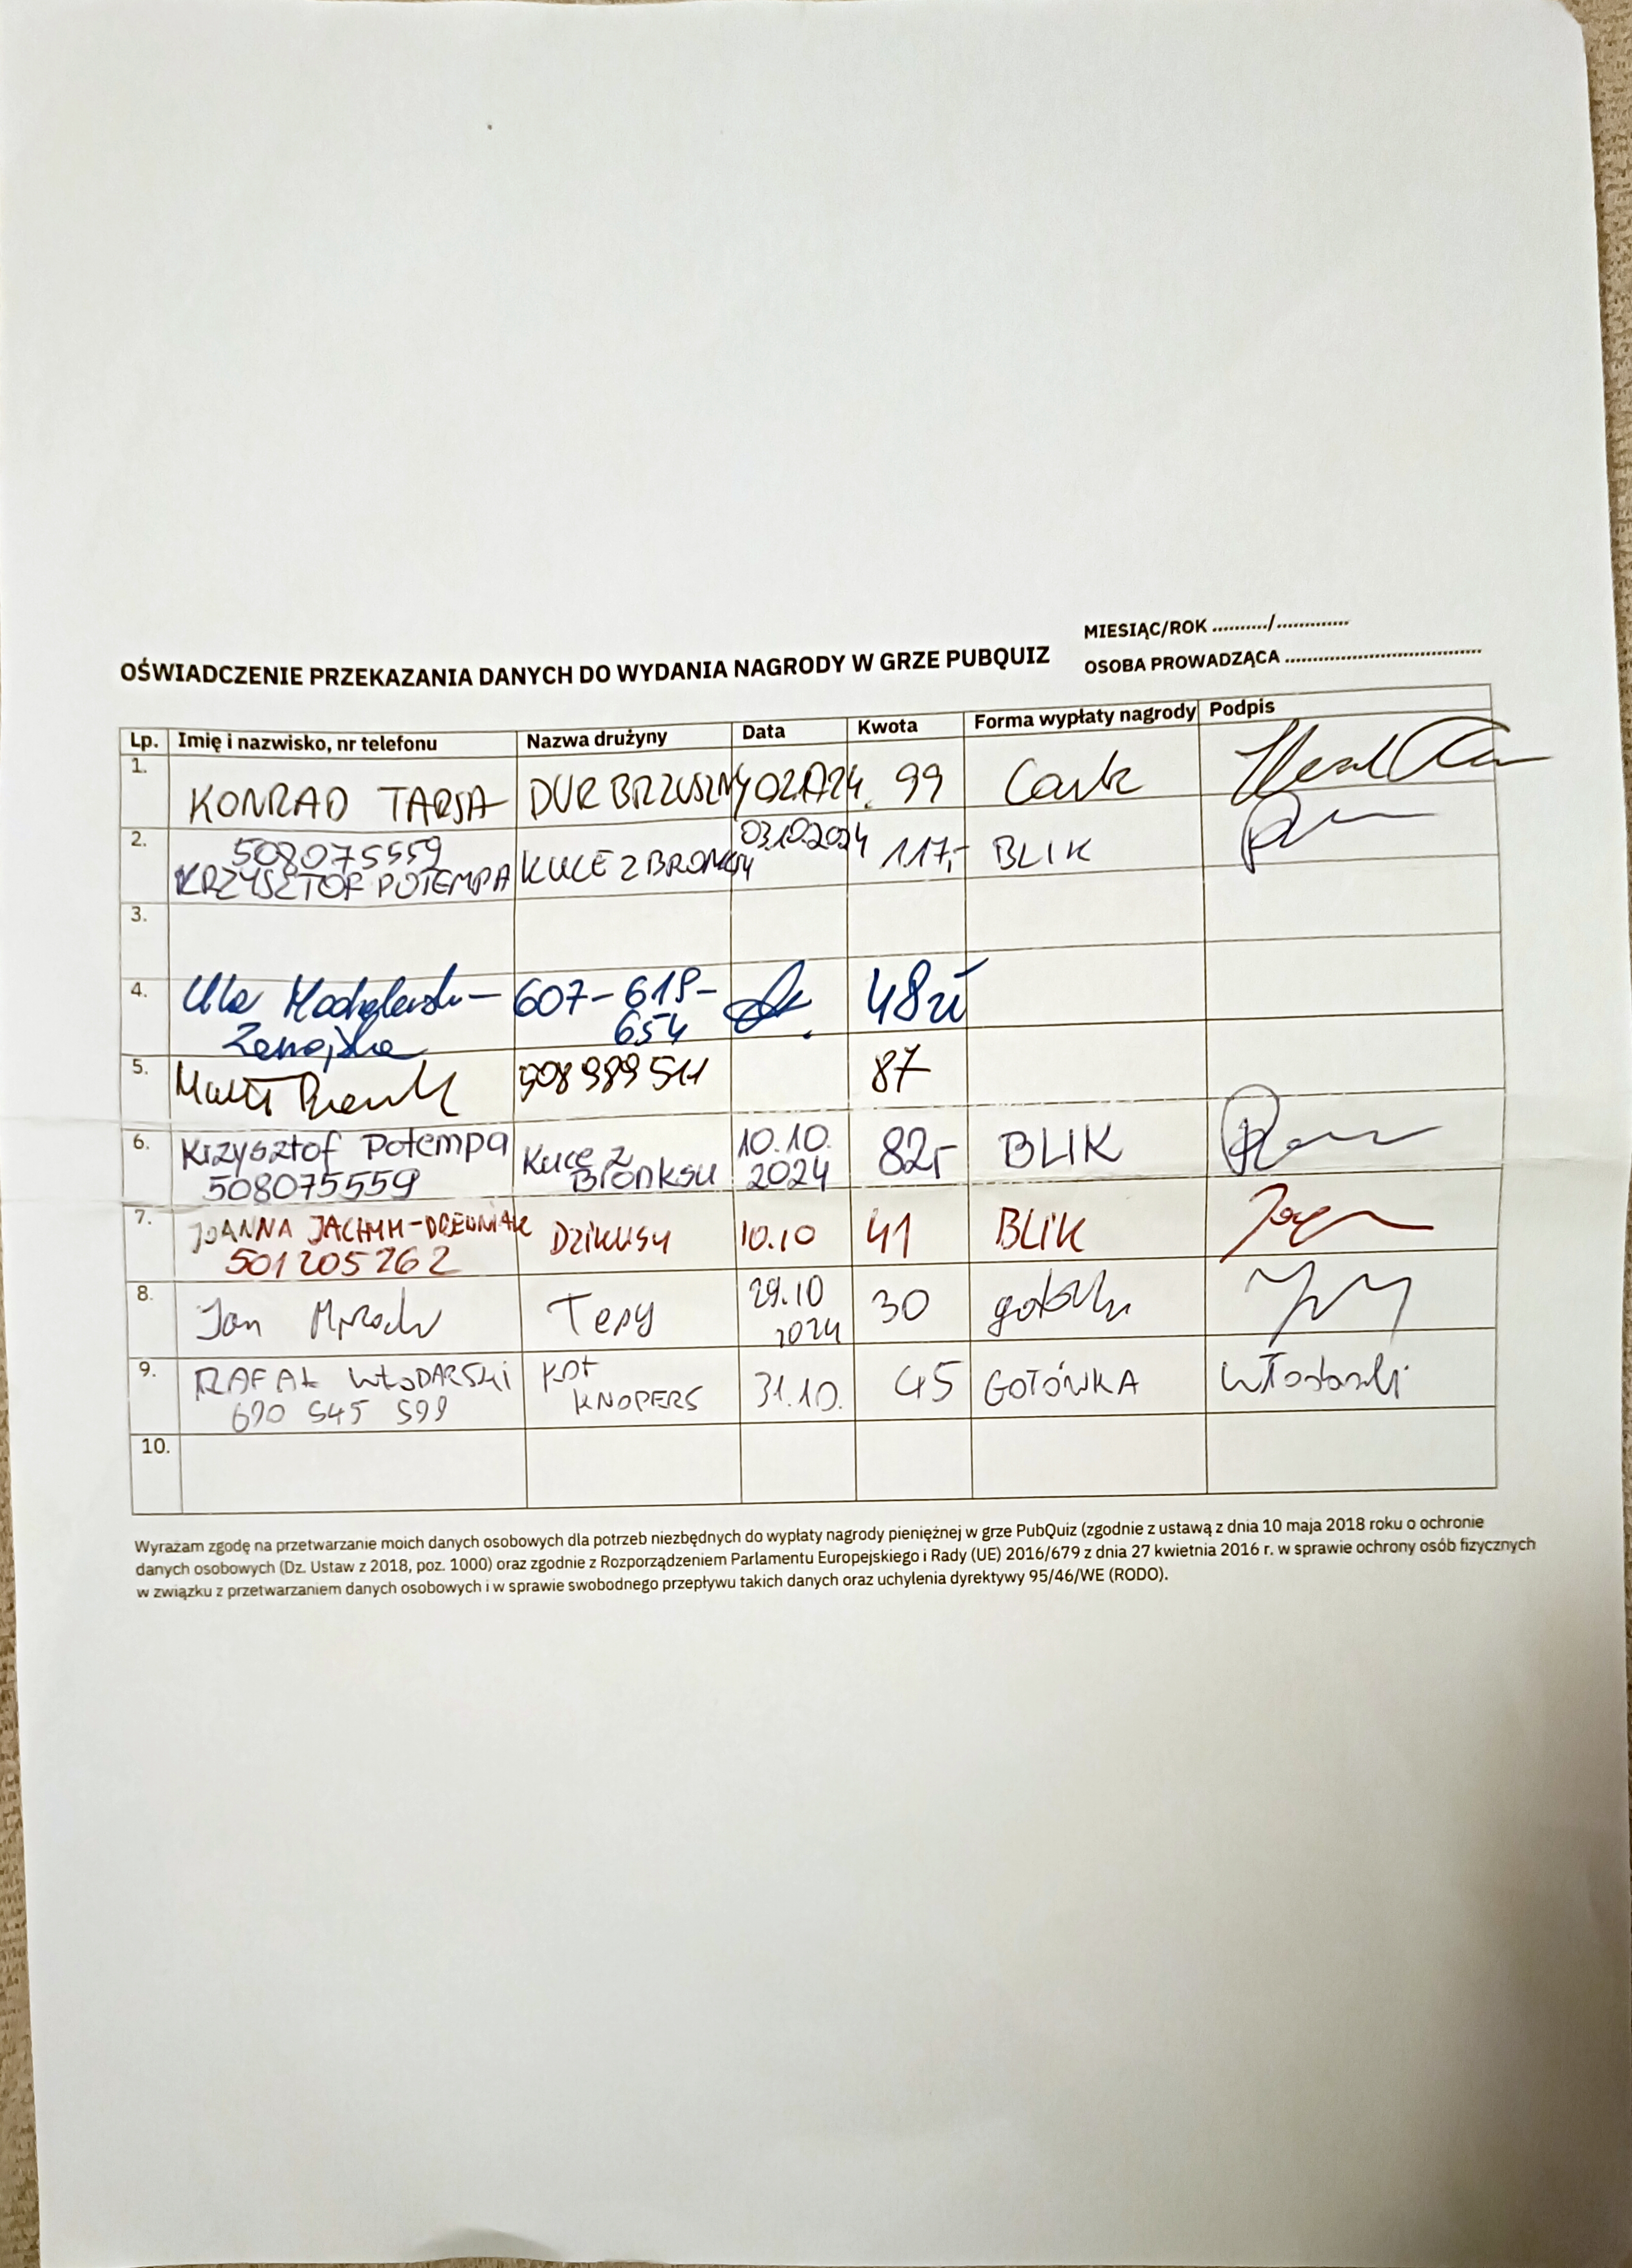 MIESIĄC/ROK ........../.............
OSOBA PROWADZĄCA ....................................
OŚWIADCZENIE PRZEKAZANIA DANYCH DO WYDANIA NAGRODY W GRZE PUBQUIZ
Lp. Imię i nazwisko, nr telefonu Nazwa drużyny Data Kwota Forma wypłaty nagrody Podpis
1. KONRAD TARSA DUR BRZUSZNY 99 Cash
2. 508075559 KUCE Z BRONKSU 03.10.2024 117,- BLIK
KRZYSZTOF POTEMPA
3.
4. 607-618- 48zł
654
5. 508989511 87
6. Krzysztof Potempa Kuce z Bronksu 10.10. 82,- BLIK
508075559 2024
7. JOANNA Dzikusy 10.10 41 BLIK
501205262
8. Jan Tepy 29.10 30
2024
9. RAFAŁ WŁODARSKI KOT 31.10. 45 GOTÓWKA
690 545 599 KNOPERS
10.
Wyrażam zgodę na przetwarzanie moich danych osobowych dla potrzeb niezbędnych do wypłaty nagrody pieniężnej w grze PubQuiz (zgodnie z ustawą z dnia 10 maja 2018 roku o ochronie
danych osobowych (Dz. Ustaw z 2018, poz. 1000) oraz zgodnie z Rozporządzeniem Parlamentu Europejskiego i Rady (UE) 2016/679 z dnia 27 kwietnia 2016 r. w sprawie ochrony osób fizycznych
w związku z przetwarzaniem danych osobowych i w sprawie swobodnego przepływu takich danych oraz uchylenia dyrektywy 95/46/WE (RODO).